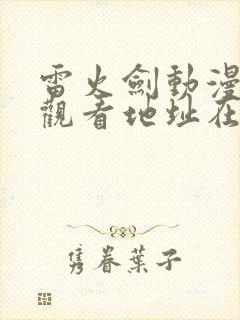 雷火劍動漫
觀看地址在
隽眷葉子